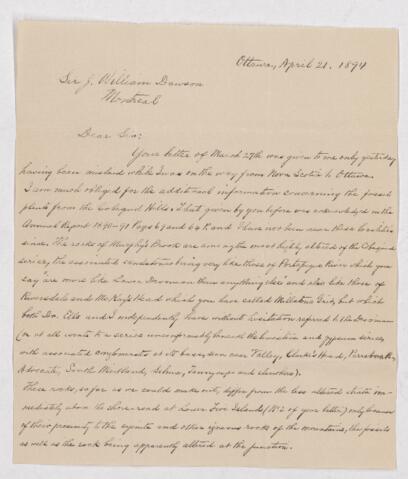 Ottawa, April 21, 1894
Sir J. William Dawson
Montreal
Dear Sir;
Your letter of March 27th was given to me only yesterday
having been mislaid while I was on the way from Nova Scotia to Ottawa.
I am much obliged for the additional information concerning the fossil
plants from the Cobequid Hills. That given by you before was acknowledged in the
Annual Report 1890-91 Pages 69 and 64 P. and I have not been near those localities
since. The rocks of Murphy's Brook are among the most highly altered of the
series, the associated sandstones being very like those of Portapique River which you
say "are more like Lower Devonian than anything else and also like those of
Riversdale and the Keys Head which you have called Millstone Grit, but which
both Dr. Ells and I independently have without hesitation referred to the Devonian
(or at all events to a series unconformably beneath the limestone and gypsum series,
with associated conglomerate at its base, seen near Clarke's Head, Parrsboro,
Advocate, South Maitland, Selma, and elsewhere).
These rocks, so far as we could make out, differ from the less altered strata im-
mediately above the shore road at Lower Five Islands (No 2 of your letter) only because
of their proximity to the syenite and other igneous rocks of the mountains, the fossils
as well as the rock being apparently altered at the junction.